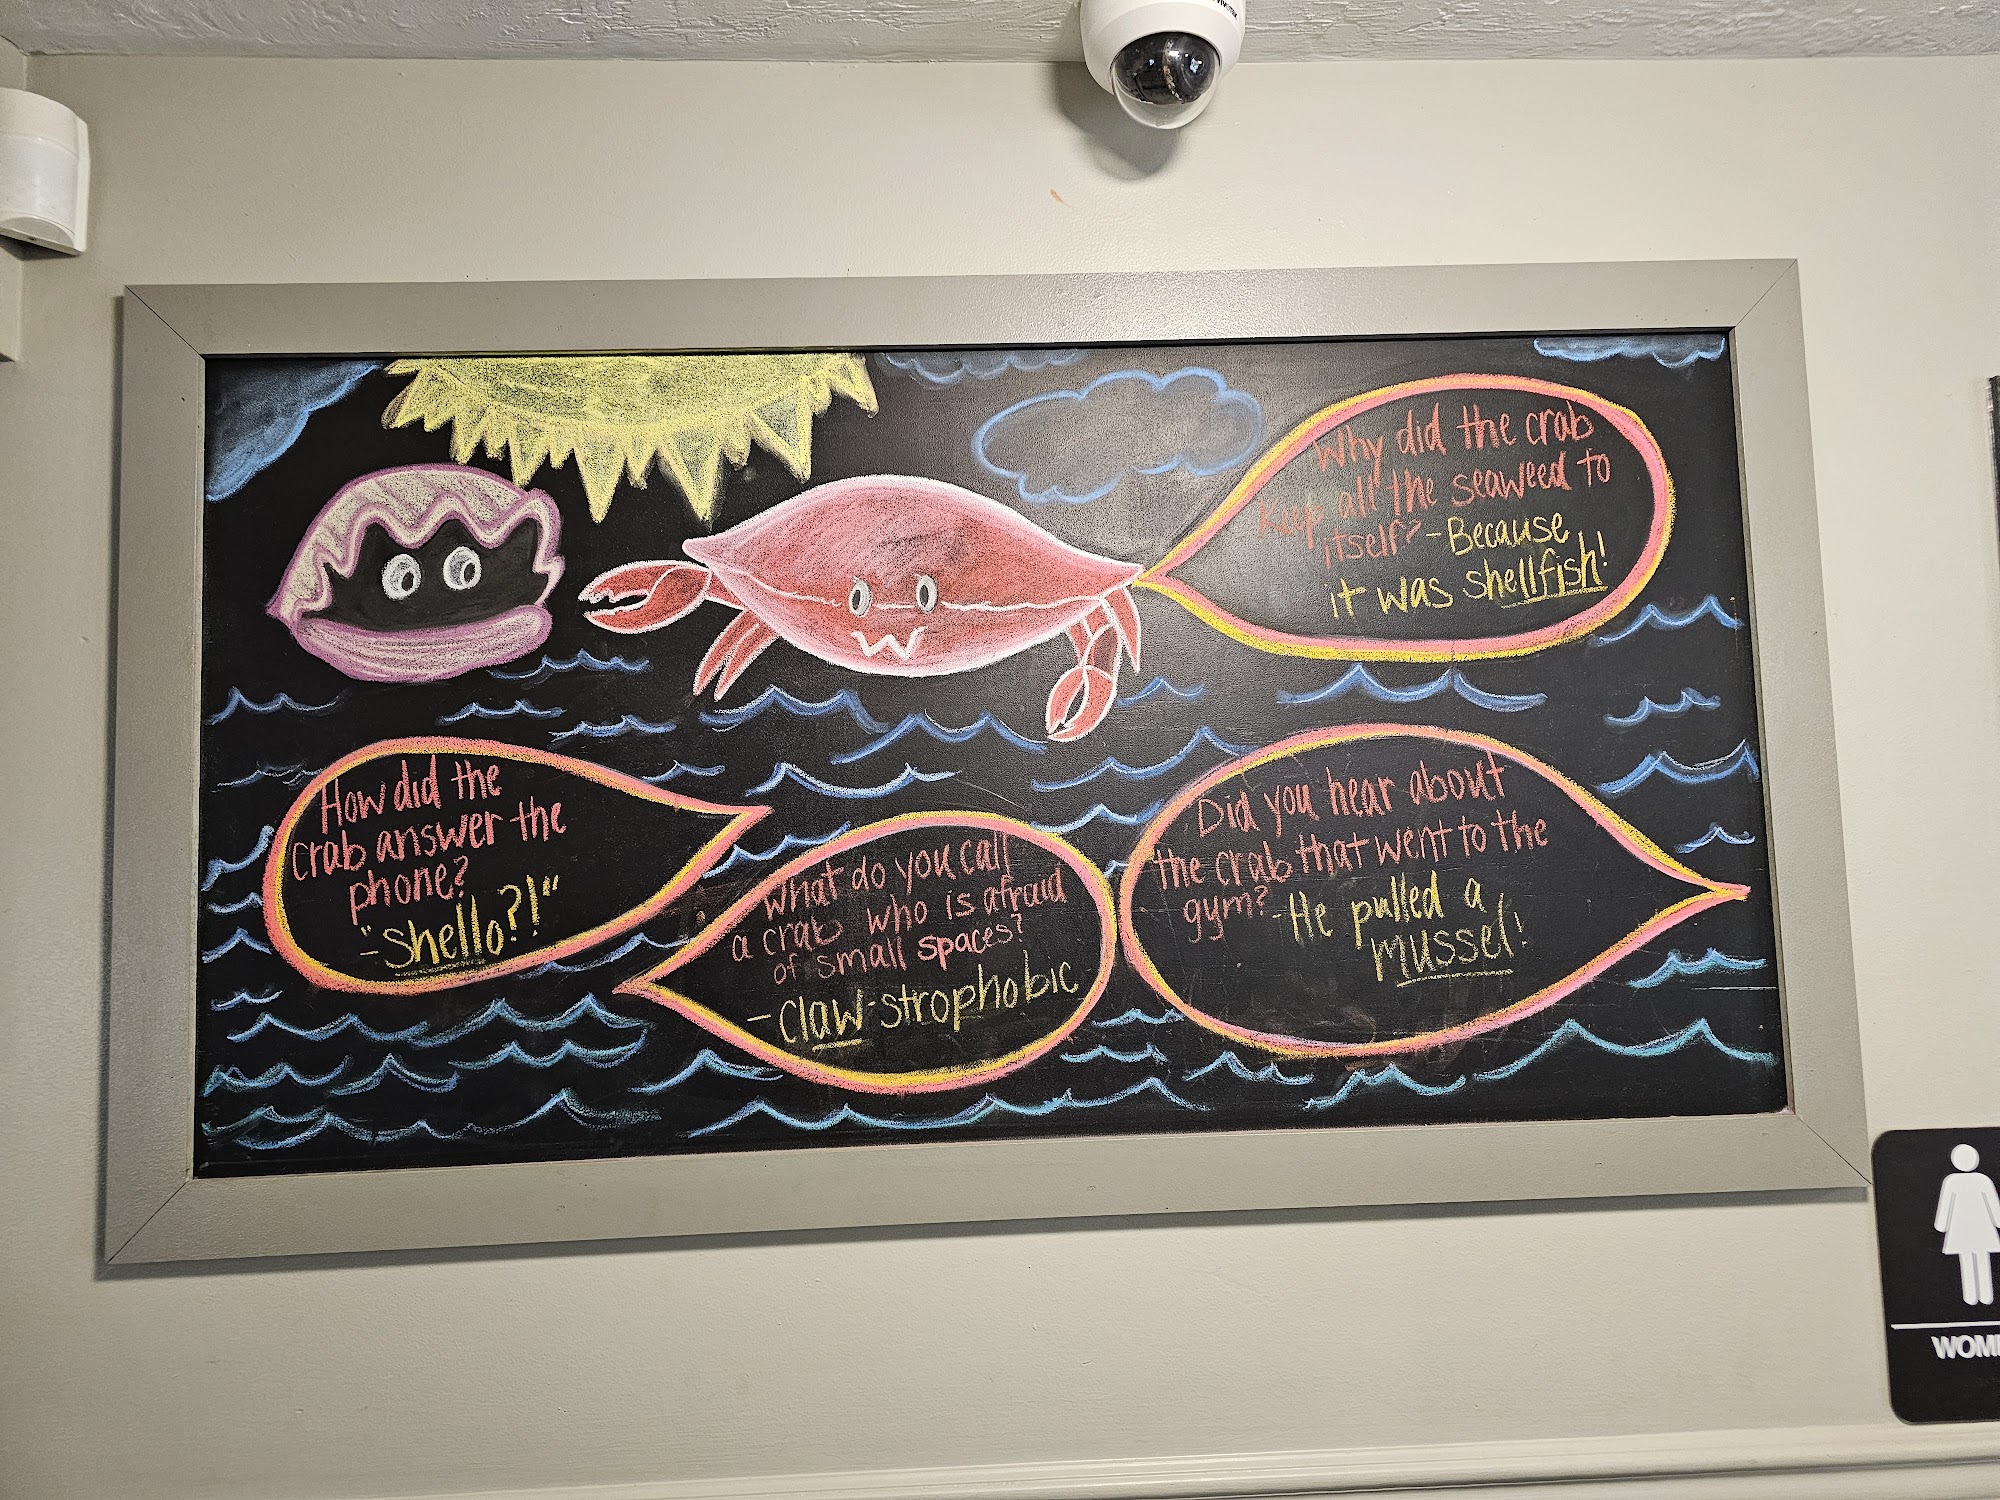 Why did the crab
keep all the seaweed to
itself? - Because
it was shellfish!
How did the
crab answer the
phone?
- "shello?!"
What do you call
a crab who is afraid
of small spaces?
- claw-strophobic
Did you hear about
the crab that went to the
gym? - He pulled a
mussel!